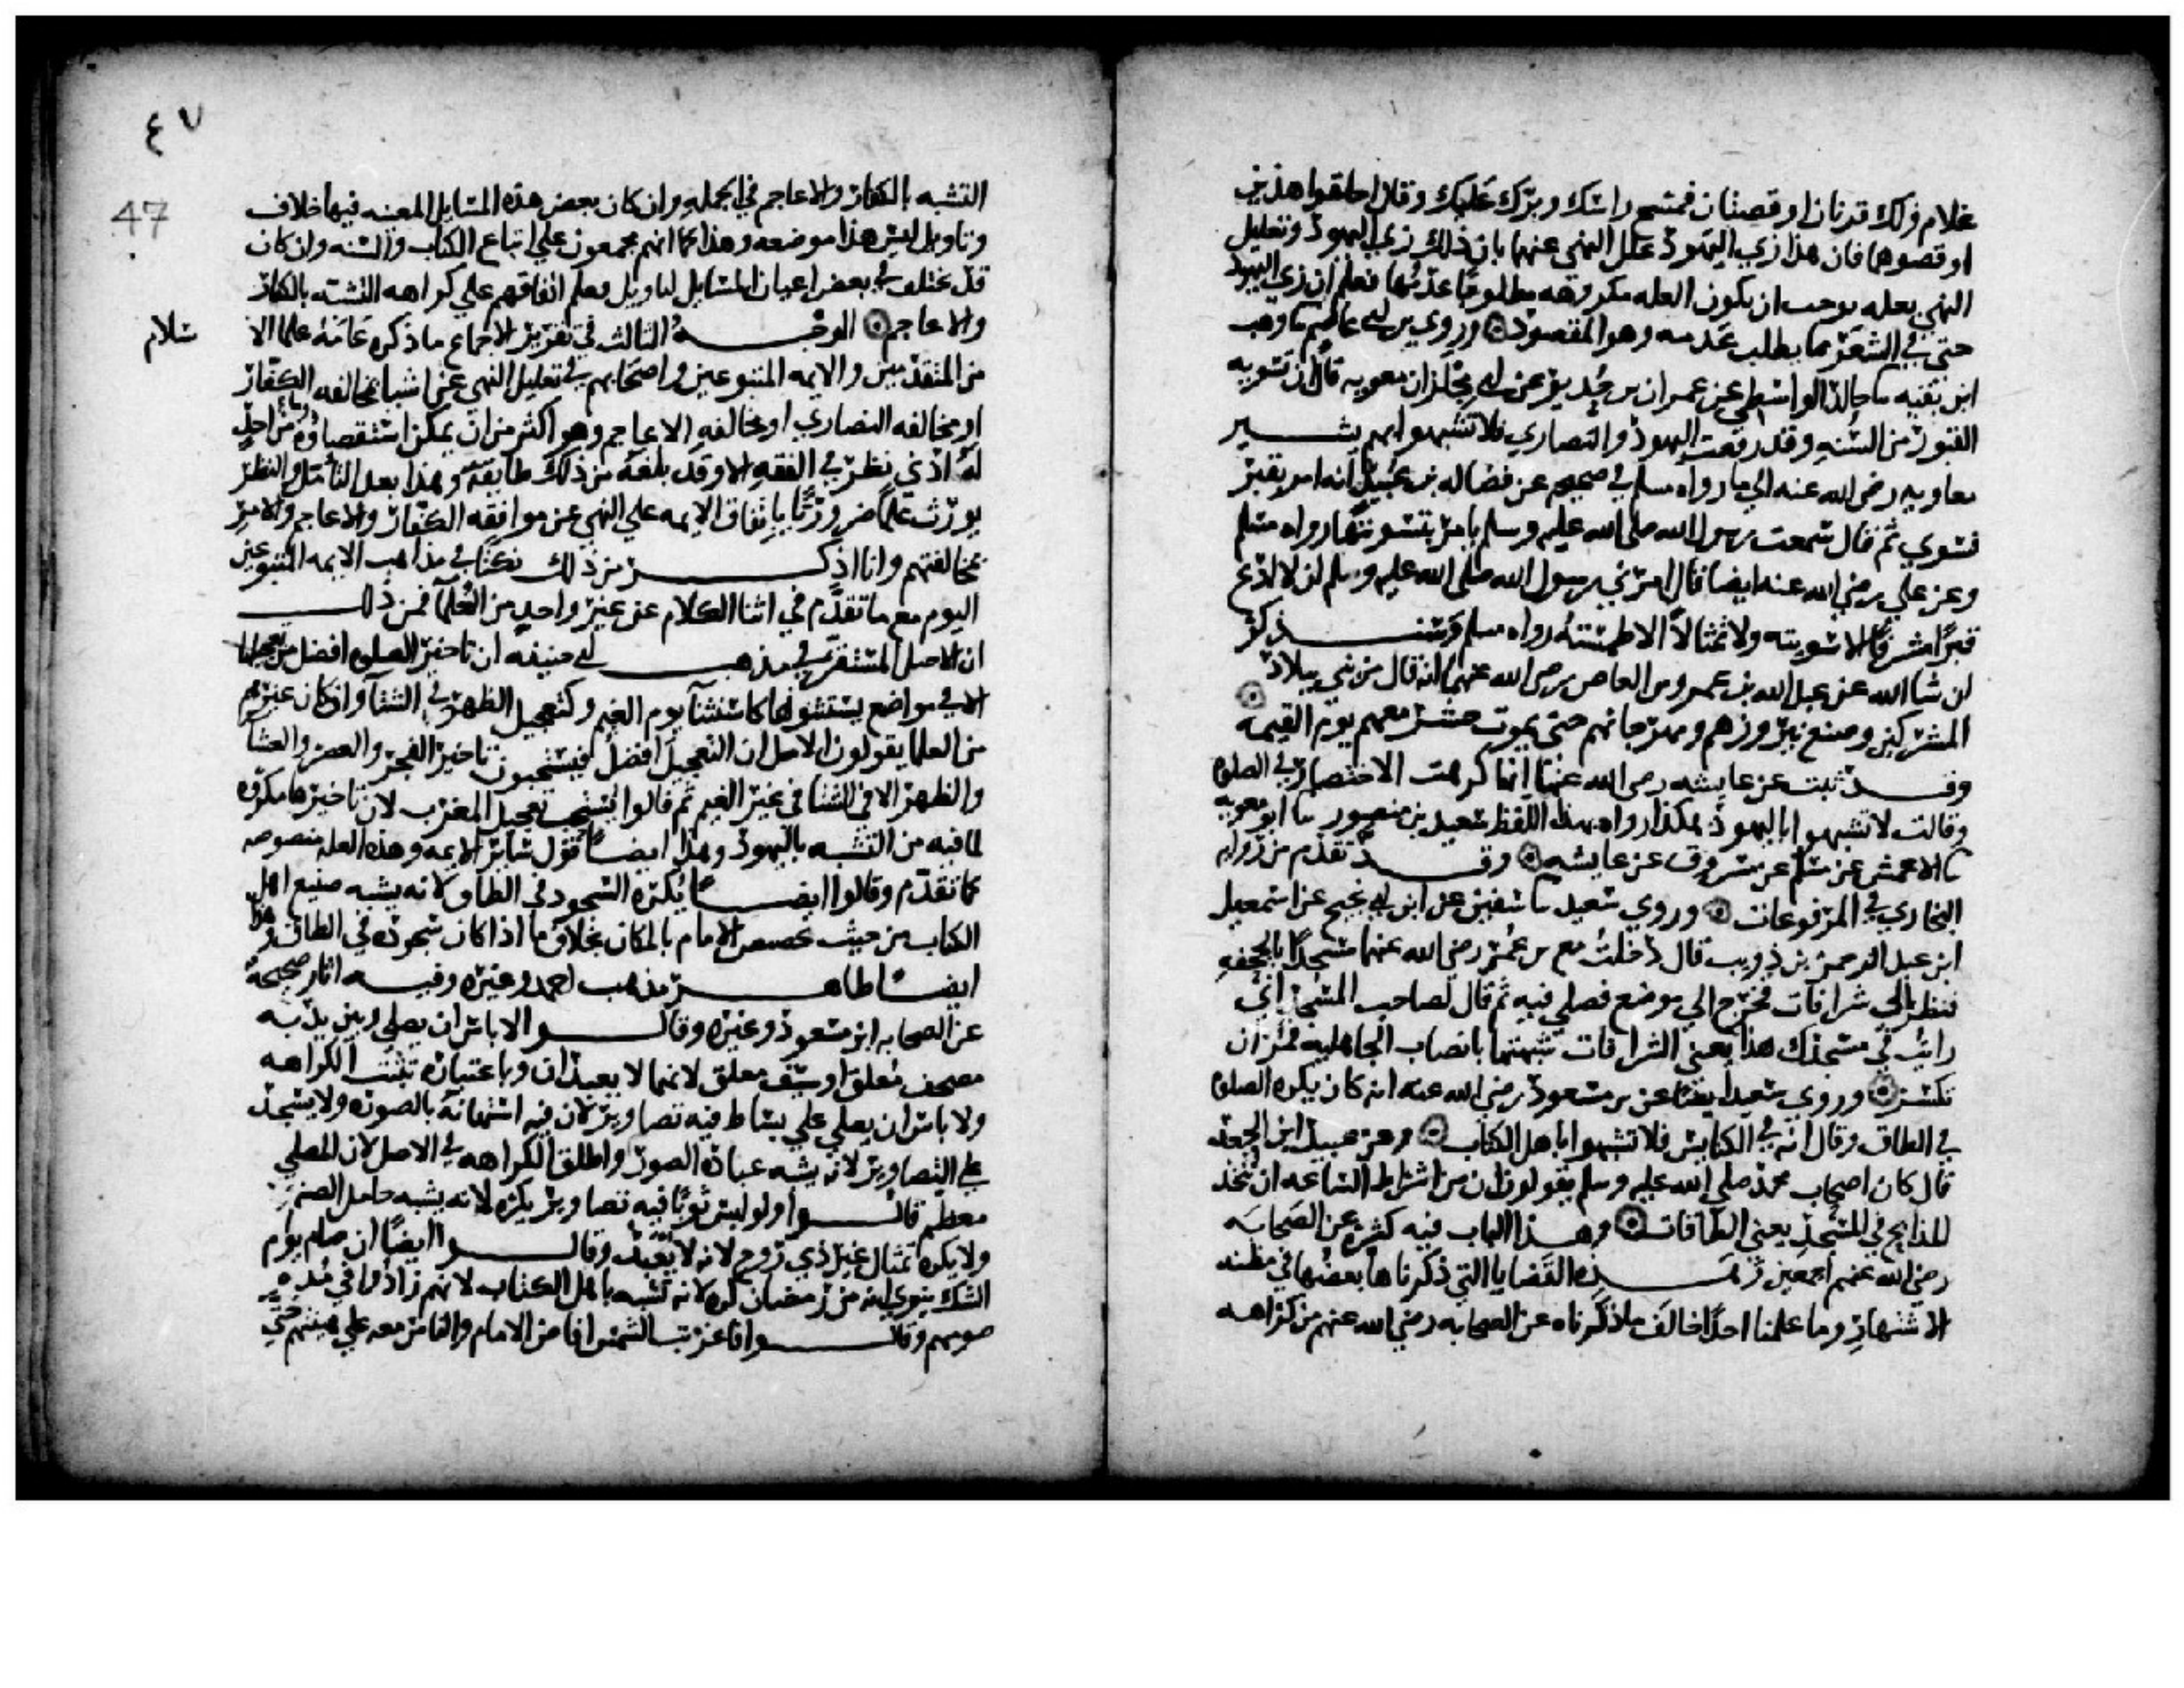 غلام ولك قرنان او قصتان فمسح راسك وبرك عليك وقال احلقوا هذين
او قصوهما فان هذا زي اليهود علل النهي عنهما بان ذلك زي اليهود وتعليل
النهي بعله يوجب ان يكون العله مكروهه مطلوبا عدمها فعلم ان زي اليهود
حتى في الشعر مما يطلب عدمه وهو المقصود وروى بن ابي عاصم ما وهب
ابن بقيه ما خالد الواسطي عن عمران بن حدير عن ابي مجلز ان معويه قال ان تسويه
القبور من السنه وقد رفعت اليهود والنصارى فلا تشبهوا بهم يشير
معاويه رضي الله عنه الى ما رواه مسلم في صحيحه عن فضاله بن عبيد انه امر بقبر
فسوي ثم قال سمعت رسول الله صلى الله عليه وسلم يامر بتسويتها رواه مسلم
وعن علي رضي الله عنه ايضا قال امرني رسول الله صلى الله عليه وسلم ان لا ادع
قبرا مشرفا الا سويته ولا تمثالا الا طمسته رواه مسلم وسنذكر
ان شا الله عن عبد الله بن عمرو بن العاص رضي الله عنهما انه قال من بنى ببلاد
المشركين وصنع نيروزهم ومهرجانهم حتى يموت حشر معهم يوم القيمه
وقد ثبت عن عايشه رضي الله عنها انها كرهت الاختصار في الصلوه
وقالت لا تشبهوا باليهود هكذا رواه بهذا اللفظ سعيد بن منصور ما ابو معويه
ما الاعمش عن مسلم عن مسروق عن عايشه وقد تقدم من روايه
البخاري في المرفوعات وروى سعيد ما سفين عن ابن ابي نجيح عن اسمعيل
ابن عبد الرحمن بن ذويب قال دخلت مع بن عمر رضي الله عنهما مسجدا بالجحفه
فنظر الى شرافات فخرج الى موضع فصلى فيه ثم قال لصاحب المسجد اني
رايت في مسجدك هذا يعني الشرافات شبهتها بانصاب الجاهليه فمر ان
تكسر وروى سعيد ايضا عن بن مسعود رضي الله عنه انه كان يكره الصلوه
في الطاق وقال انه في الكنايس فلا تشبهوا باهل الكتاب وعن عبيد ابن ابي الجعد
قال كان اصحاب محمد صلى الله عليه وسلم يقولون ان من اشراط الساعه ان تتخذ
المذابح في المسجد يعني الطاقات وهذا الباب فيه كثره عن الصحابه
رضي الله عنهم اجمعين وهذه القضايا التي ذكرناها بعضها في مظنه
الاشتهار وما علمنا احدا خالف ما ذكرناه عن الصحابه رضي الله عنهم من كراهه
٤٧
47
التشبه بالكفار والاعاجم في الجمله وان كان بعض هذه المسايل المعينه فيها خلاف
وتاويل ليس هذا موضعه وهذا كما انهم مجمعون على اتباع الكتاب والسنه وان كان
قد يختلف في بعض اعيان المسايل لتاويل فعلم اتفاقهم على كراهه التشبه بالكفار
والاعاجم الوجه الثالث في تقرير الاجماع ما ذكره عامه علما الا سلام
من المتقدمين والايمه المتبوعين واصحابهم في تعليل النهي عن اشيا بمخالفه الكفار
او مخالفه النصارى او مخالفه الاعاجم وهو اكثر من ان يمكن استقصاوه وما من احد
له ادنى نظر في الفقه الا وقد بلغه من ذلك طايفه وهذا بعد التامل والنظر
يورث علما ضروريا باتفاق الايمه على النهي عن موافقه الكفار والاعاجم والامر
بمخالفتهم وانا اذكر من ذلك نكتا في مذاهب الايمه المتبوعين
اليوم مع ما تقدم في اثنا الكلام عن غير واحد من العلما فمن ذلك
ان الاصل المستقر في مذهب ابي حنيفه ان تاخير الصلوه افضل من تعجيلها
الا في مواضع يستثنونها كاستثنا يوم الغيم وكتعجيل الظهر في الشتا وان كان غيرهم
من العلما يقولون الاصل ان التعجيل افضل فيستحبون تاخير الفجر والعصر والعشا
والظهر الا في الشتا في غير الغيم ثم قالوا يستحب تعجيل المغرب لان تاخيرها مكروه
لما فيه من التشبه باليهود وهذا ايضا قول ساير الايمه وهذه العله منصوصه
كما تقدم وقالوا ايضا يكره السجود في الطاق لانه يشبه صنيع اهل
الكتاب من حيث تخصيص الامام بالمكان بخلاف ما اذا كان سجوده في الطاق وهذا
ايضا ظاهر مذهب احمد وغيره وفيه اثار صحيحه
عن الصحابه ابن مسعود وغيره وقالوا لا باس ان يصلي وبين يديه
مصحف معلق او سيف معلق لانهما لا يعبدان وباعتباره تثبت الكراهه
ولا باس ان يصلي على بساط فيه تصاوير لان فيه استهانه بالصوره ولا يسجد
على التصاوير لانه يشبه عباده الصور واطلق الكراهه في الاصل لان المصلي
معظم قالوا ولو لبس ثوبا فيه تصاوير يكره لانه يشبه حامل الصنم
ولا يكره تمثال غير ذي روح لانه لا يعبد وقالوا ايضا ان صام يوم
الشك ينوي انه من رمضان كره لانه تشبه باهل الكتاب لانهم زادوا في مده
صومهم وقالوا فاذا غربت الشمس افاض الامام والناس معه على هينتهم حتى